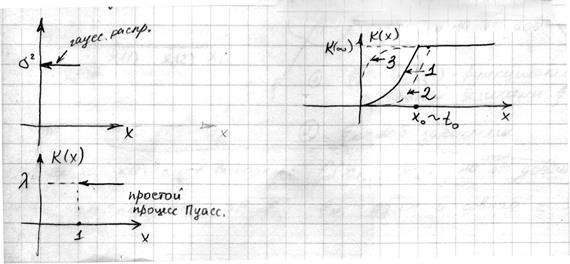 гаусс. распр.
σ²
x
K(x)
λ
простой
процесс Пуасс.
1
x
K(x)
K(∞)
3
1
2
x₀ ~ t₀
x
x